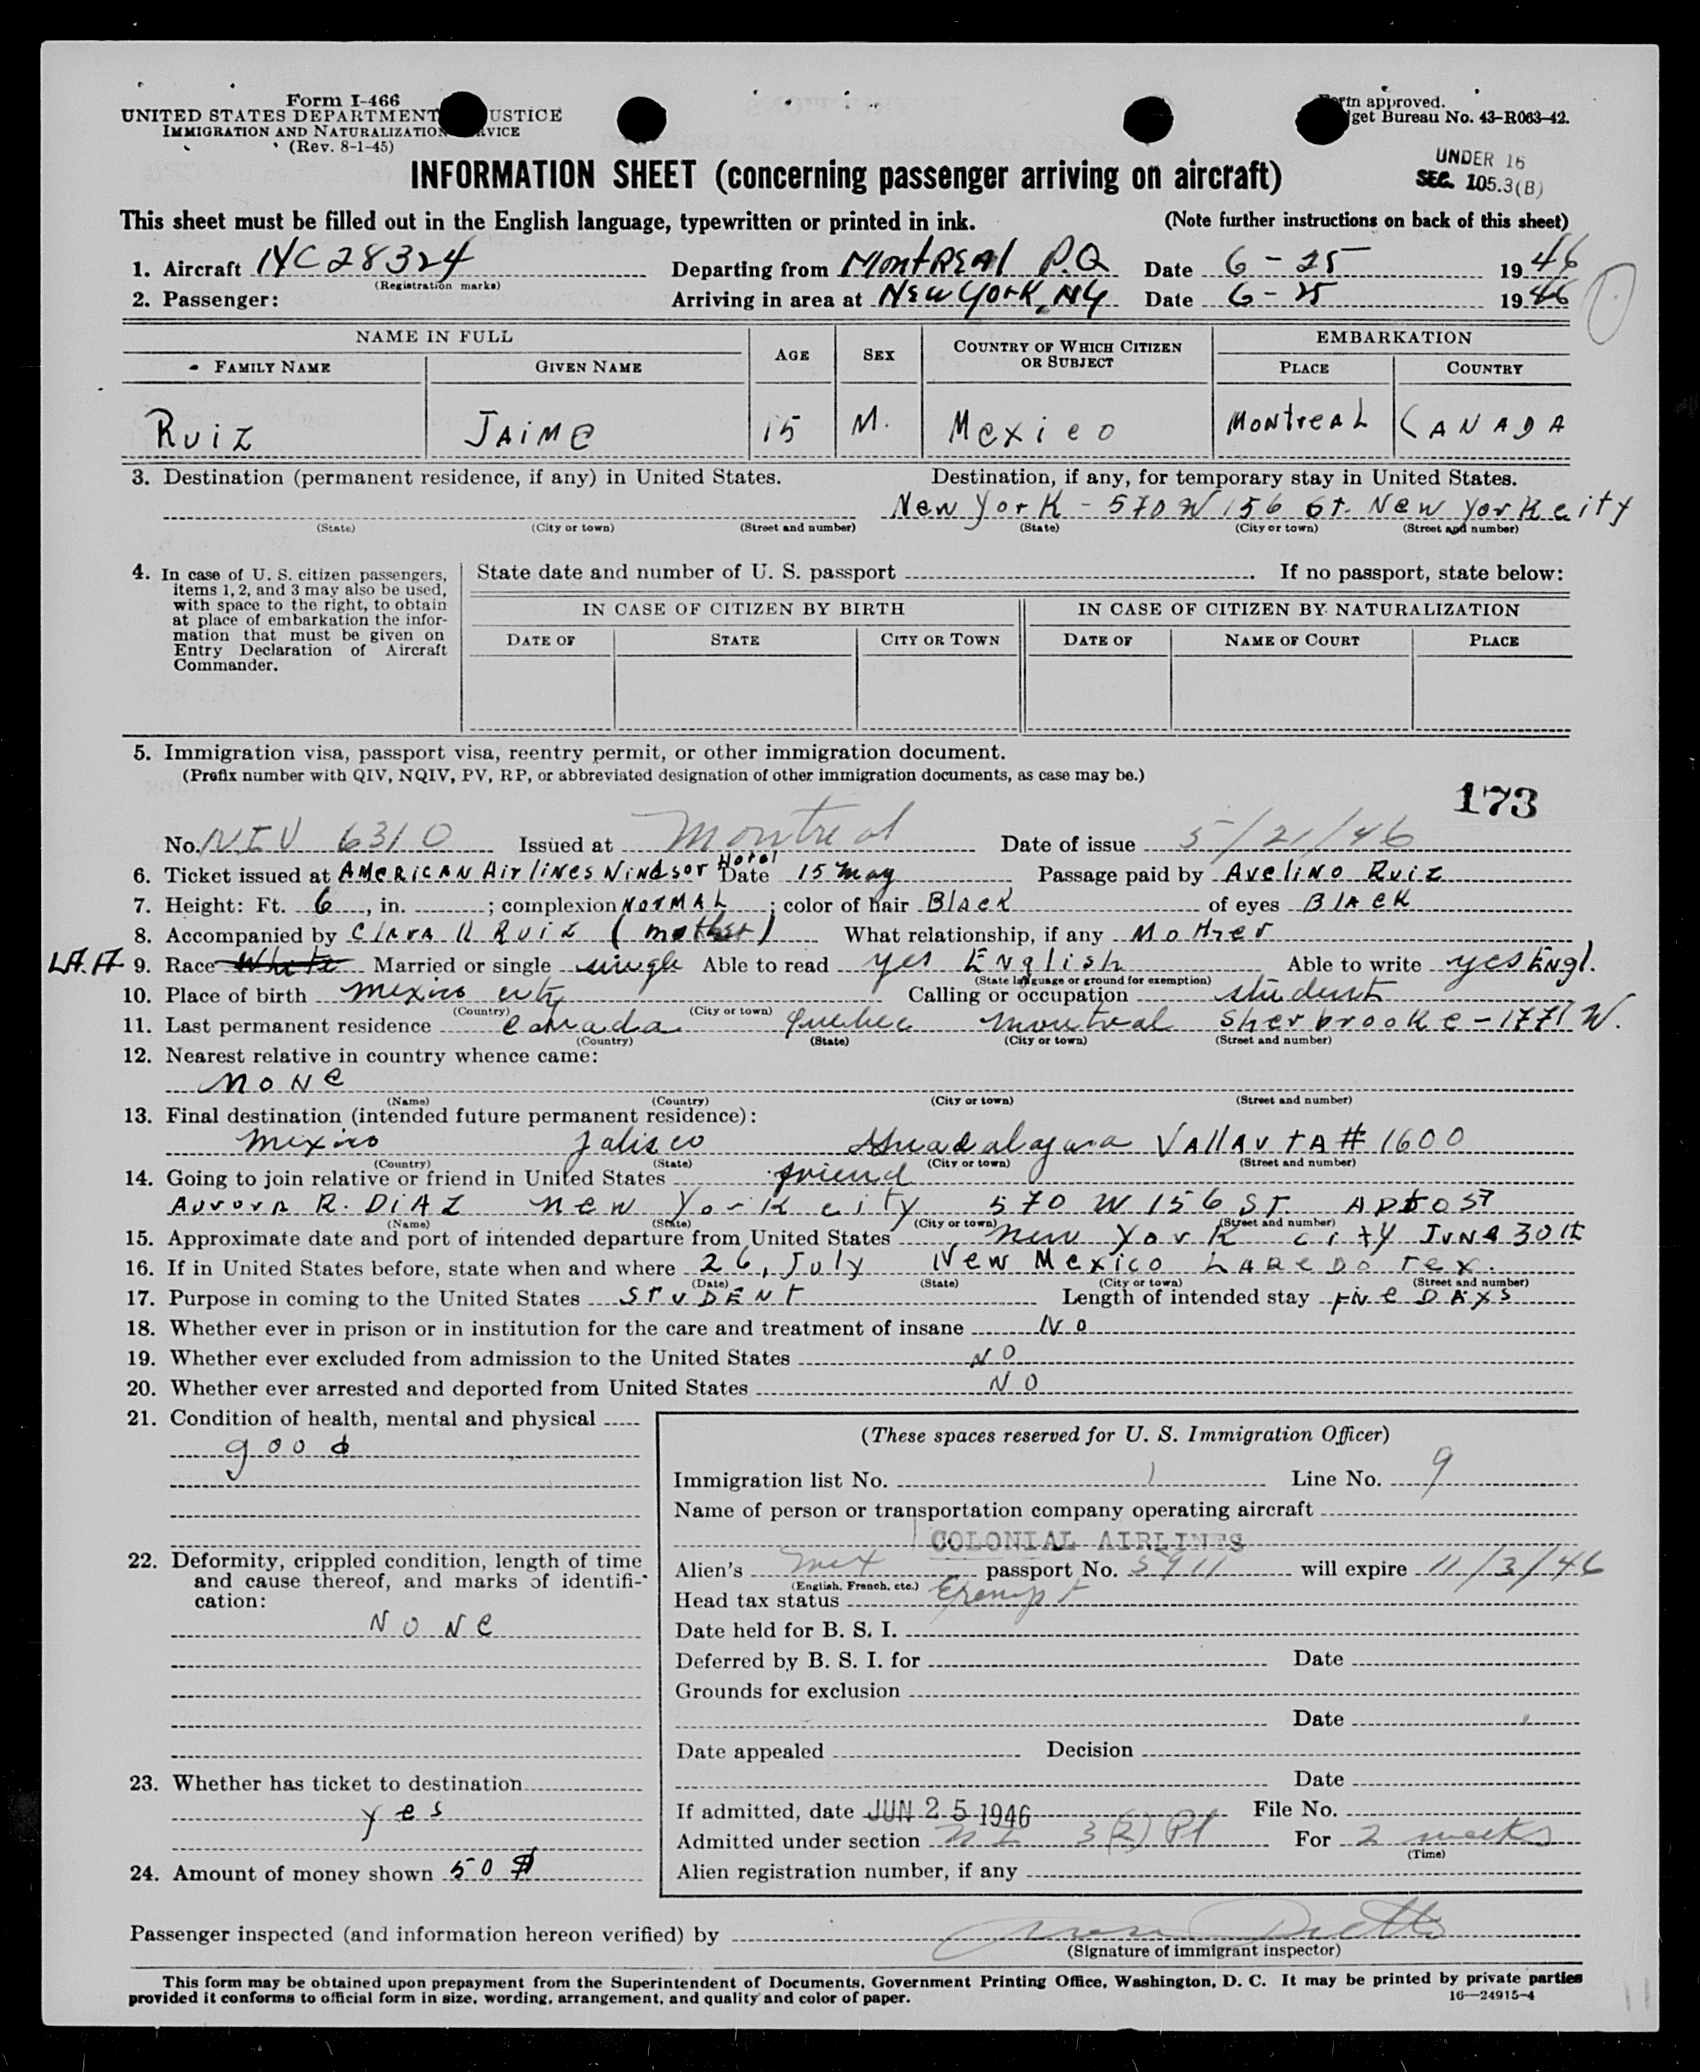 Form I-466
UNITED STATES DEPARTMENT USTICE
IMMIGRATION AND NATURALIZATION RVICE
(Rev. 8-1-45)
rm approved.
get Bureau No. 43-R063-42.
INFORMATION SHEET (concerning passenger arriving on aircraft)
UNDER 16
SEC. 105.3(B)
This sheet must be filled out in the English language, typewritten or printed in ink. (Note further instructions on back of this sheet)
1. Aircraft NC 28324 Departing from MontREAl P.Q Date 6-25 1946
(Registration marks)
2. Passenger: Arriving in area at New York, NY Date 6-25 1946
NAME IN FULL AGE SEX COUNTRY OF WHICH CITIZEN OR SUBJECT EMBARKATION
FAMILY NAME GIVEN NAME PLACE COUNTRY
Ruiz JAiME 15 M. Mexico MontreaL CANADA
3. Destination (permanent residence, if any) in United States. Destination, if any, for temporary stay in United States.
New York - 570 W 156 St. New York city
(State) (City or town) (Street and number) (State) (City or town) (Street and number)
4. In case of U. S. citizen passengers, items 1, 2, and 3 may also be used, with space to the right, to obtain at place of embarkation the information that must be given on Entry Declaration of Aircraft Commander.
State date and number of U. S. passport . If no passport, state below:
IN CASE OF CITIZEN BY BIRTH IN CASE OF CITIZEN BY NATURALIZATION
DATE OF STATE CITY OR TOWN DATE OF NAME OF COURT PLACE
5. Immigration visa, passport visa, reentry permit, or other immigration document.
(Prefix number with QIV, NQIV, PV, RP, or abbreviated designation of other immigration documents, as case may be.)
173
No. NIV 6310 Issued at Montreal Date of issue 5/21/46
6. Ticket issued at AMeRiCAN AirliNes WiNdsor Hotel Date 15 May Passage paid by AveliNo Ruiz
7. Height: Ft. 6, in. ; complexion NorMAL; color of hair Black of eyes BlAcK
8. Accompanied by ClArA Ruiz (mother) What relationship, if any Mother
9. Race White Married or single single Able to read yes English Able to write yes Engl.
(State language or ground for exemption)
10. Place of birth Mexico city Calling or occupation student
(Country) (City or town)
11. Last permanent residence Canada Quebec Montreal Sherbrooke-1771 W.
(Country) (State) (City or town) (Street and number)
12. Nearest relative in country whence came:
NoNe
(Name) (Country) (City or town) (Street and number)
13. Final destination (intended future permanent residence):
Mexico Jalisco Guadalajara VAllAvtA # 1600
(Country) (State) (City or town) (Street and number)
14. Going to join relative or friend in United States friend
AurorA R. DiAZ New York city 570 W 156 ST.
(Name) (State) (City or town) (Street and number)
15. Approximate date and port of intended departure from United States New York city June 30th
16. If in United States before, state when and where 26, July New Mexico LAReDo Tex.
(Date) (State) (City or town) (Street and number)
17. Purpose in coming to the United States STUDENT Length of intended stay five DAYs
18. Whether ever in prison or in institution for the care and treatment of insane No
19. Whether ever excluded from admission to the United States NO
20. Whether ever arrested and deported from United States NO
21. Condition of health, mental and physical
good
22. Deformity, crippled condition, length of time and cause thereof, and marks of identification:
NoNe
23. Whether has ticket to destination
yes
24. Amount of money shown 50 $
(These spaces reserved for U. S. Immigration Officer)
Immigration list No. 1 Line No. 9
Name of person or transportation company operating aircraft
COLONIAL AIRLINES
Alien's Mex passport No. 5911 will expire 11/3/46
(English, French, etc.)
Head tax status Exempt
Date held for B. S. I.
Deferred by B. S. I. for Date
Grounds for exclusion
Date
Date appealed Decision
Date
If admitted, date JUN 25 1946 File No.
Admitted under section 3(2) For 2 weeks
(Time)
Alien registration number, if any
Passenger inspected (and information hereon verified) by
(Signature of immigrant inspector)
This form may be obtained upon prepayment from the Superintendent of Documents, Government Printing Office, Washington, D. C. It may be printed by private parties
provided it conforms to official form in size, wording, arrangement, and quality and color of paper. 16—24915-4